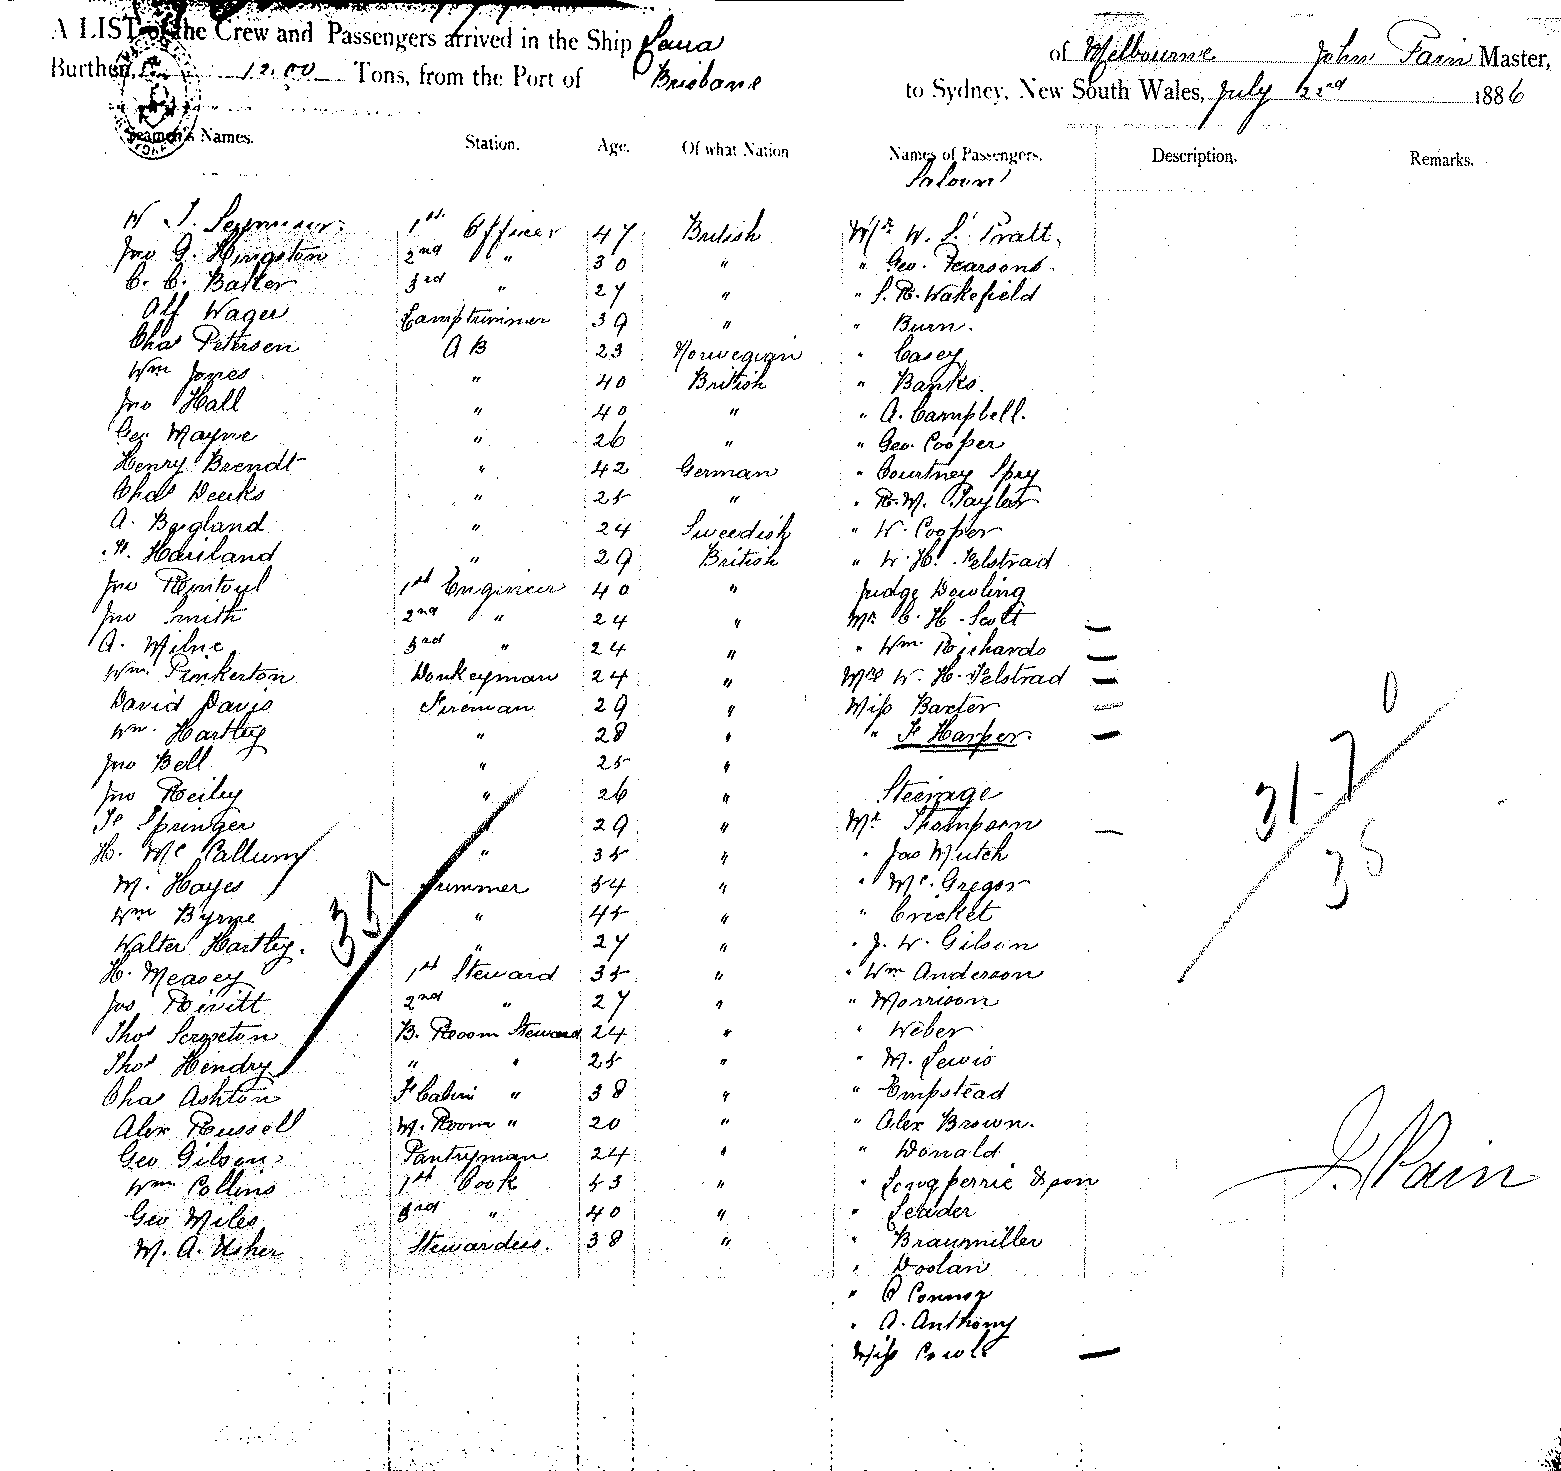 A LIST of the Crew and Passengers arrived in the Ship of Melbourne John Pain Master,
Burthen, 1200 Tons, from the Port of Brisbane to Sydney, New South Wales, July 22nd 1886
Seamen's Names. Station. Age. Of what Nation Names of Passengers. Description. Remarks.
Saloon
W J. Seymour 1st Officer 47 British Mr W. S. Pratt.
Jno G. Kingston 2nd " 30 " " Geo. Pearsons.
C. C. Balter 3rd " 27 " " S. R. Wakefield
Alf Wager Lamptrimmer 39 " " Burn.
Chas Petersen A B 23 Norwegian " Casey
Wm Jones " 40 British " Banks.
Jno Hall " 40 " " A. Campbell.
Geo. Mayne " 26 " " Geo. Cooper
Henry Brendt " 42 German " Courtney Spry
Chas Deeks " 25 " " R. W. Taylor
A. Bergland " 24 Swedish " W. Cooper
Harland " 29 British " W. H. Felstrad
Jno Rintoul 1st Engineer 40 " Judge Dowling
Jno Smith 2nd " 24 " Mr C. H. Scott
A. Milne 3rd " 24 " " Wm Richards
Wm. Pinkerton Donkeyman 24 " Mrs W. H. Felstrad
David Davis Fireman 29 " Miss Baxter
Wm. Hartley " 28 " " F Harper.
Jno Bell " 25 "
Jno Reiley " 26 " Steerage
Springer " 29 " Mr Thompson
H. McCallum " 35 " " Jas Mutch
M. Hayes Trimmer 54 " " McGregor
Wm Byrne " 45 " " Cricket
Walter Hartley. " 27 " " J. W. Gilson
H. Measey 1st Steward 35 " " Wm Anderson
Jos Rivitt 2nd " 27 " " Morrison
Thos Scropton B. Room Steward 24 " " Weber
Thos Hendry " " 25 " " M. Lewis
Chas Ashton F Cabin " 38 " " Empstead
Alex Russell M. Room " 20 " " Alex Brown.
Geo Gilson Pantryman 24 " " Donald
Wm Collins 1st Cook 53 " " Longperrie & son
Geo Miles 3rd " 40 " " Leader
M. A. Usher Stewardess. 38 " " Braumiller
" Doolan
" O Connor
" A. Anthony
Miss Cowle
35
31-7
0
35
J. Pain